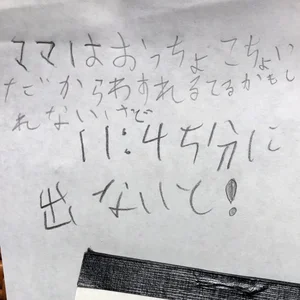 ママはおっちょこちょい
だからわすれるてるかもし
れないけど
11:45分に
出ないと!